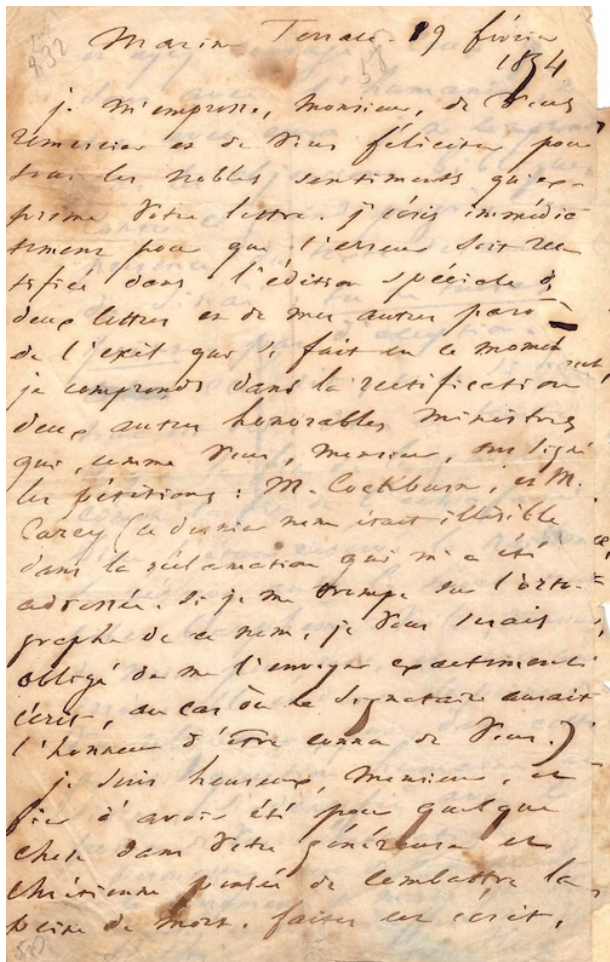 Marine Terrace. 19 février
1854
58
832
je m'empresse, Monsieur, de vous
remercier et de vous féliciter pour
tous les nobles sentiments qu'ex-
prime votre lettre. j'écris immédia
tement pour que l'erreur soit rec
tifiée dans l'édition spéciale de
deux lettres et de mes autres paro-
de l'exil qui se fait en ce moment
je comprends dans la rectification
deux autres honorables ministres
qui, comme vous, Monsieur, ont signé
les pétitions : M. Cockburn, et M.
Carey (ce dernier nom était illisible
dans la réclamation qui m'a été
adressée. Si je me trompe sur l'orto-
graphe de ce nom, je vous serais
obligé de me l'envoyer exactement
écrit, au cas où le signataire aurait
l'honneur d'être connu de vous.)
je suis heureux, Monsieur, et
fier d'avoir été pour quelque
chose dans votre généreuse et
chrétienne pensée de combattre la
peine de mort. faites cet écrit,